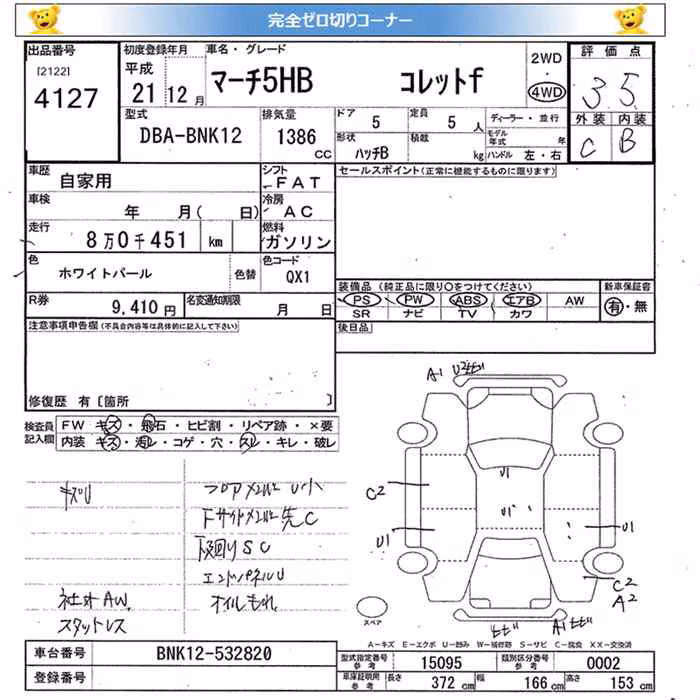 完全ゼロ切りコーナー
出品番号 初度登録年月 車名・グレード 評価点
[2122] 平成 2WD
4127 21 12月 マーチ5HB コレットf 4WD 3 5
型式 排気量 ドア 5 定員 5人 ディーラー・並行 外装 内装
DBA-BNK12 1386 CC 形状 ハッチB 積載 kg モデル年式 年 C B
ハンドル 左・右
車歴 自家用 シフト FAT セールスポイント(正常に機能するものに限ります)
車検 年 月( 日) 冷房 AC
走行 8万0千451 km 燃料 ガソリン
色 ホワイトパール 色替 色コード QX1
装備品(純正品に限り〇をつけてください) 新車保証書
R券 9,410円 名変通知期限 月 日 PS PW ABS エアB AW 有・無
SR ナビ TV カワ
注意事項申告欄(不具合内容等は具体的に記入して下さい) 後日品
修復歴 有[箇所 ]
検査員 FW キズ・飛石・ヒビ割・リペア跡・×要
記入欄 内装 キズ・汚レ・コゲ・穴・スレ・キレ・破レ
A1 U2
キズU フロア U小
C2 U1
先C U1
下廻りSC U1 U1
エンドパネルU
社外AW オイルもれ C2
スタットレス A2
スペア A1
A-キズ E-エクボ U-凹み W-補修跡 S-サビ C-腐食 XX-交換済
車台番号 BNK12-532820 型式指定番号 参考 15095 類別区分番号 参考 0002
登録番号 車庫証明用 参考 長さ 372cm 幅 166cm 高さ 153cm